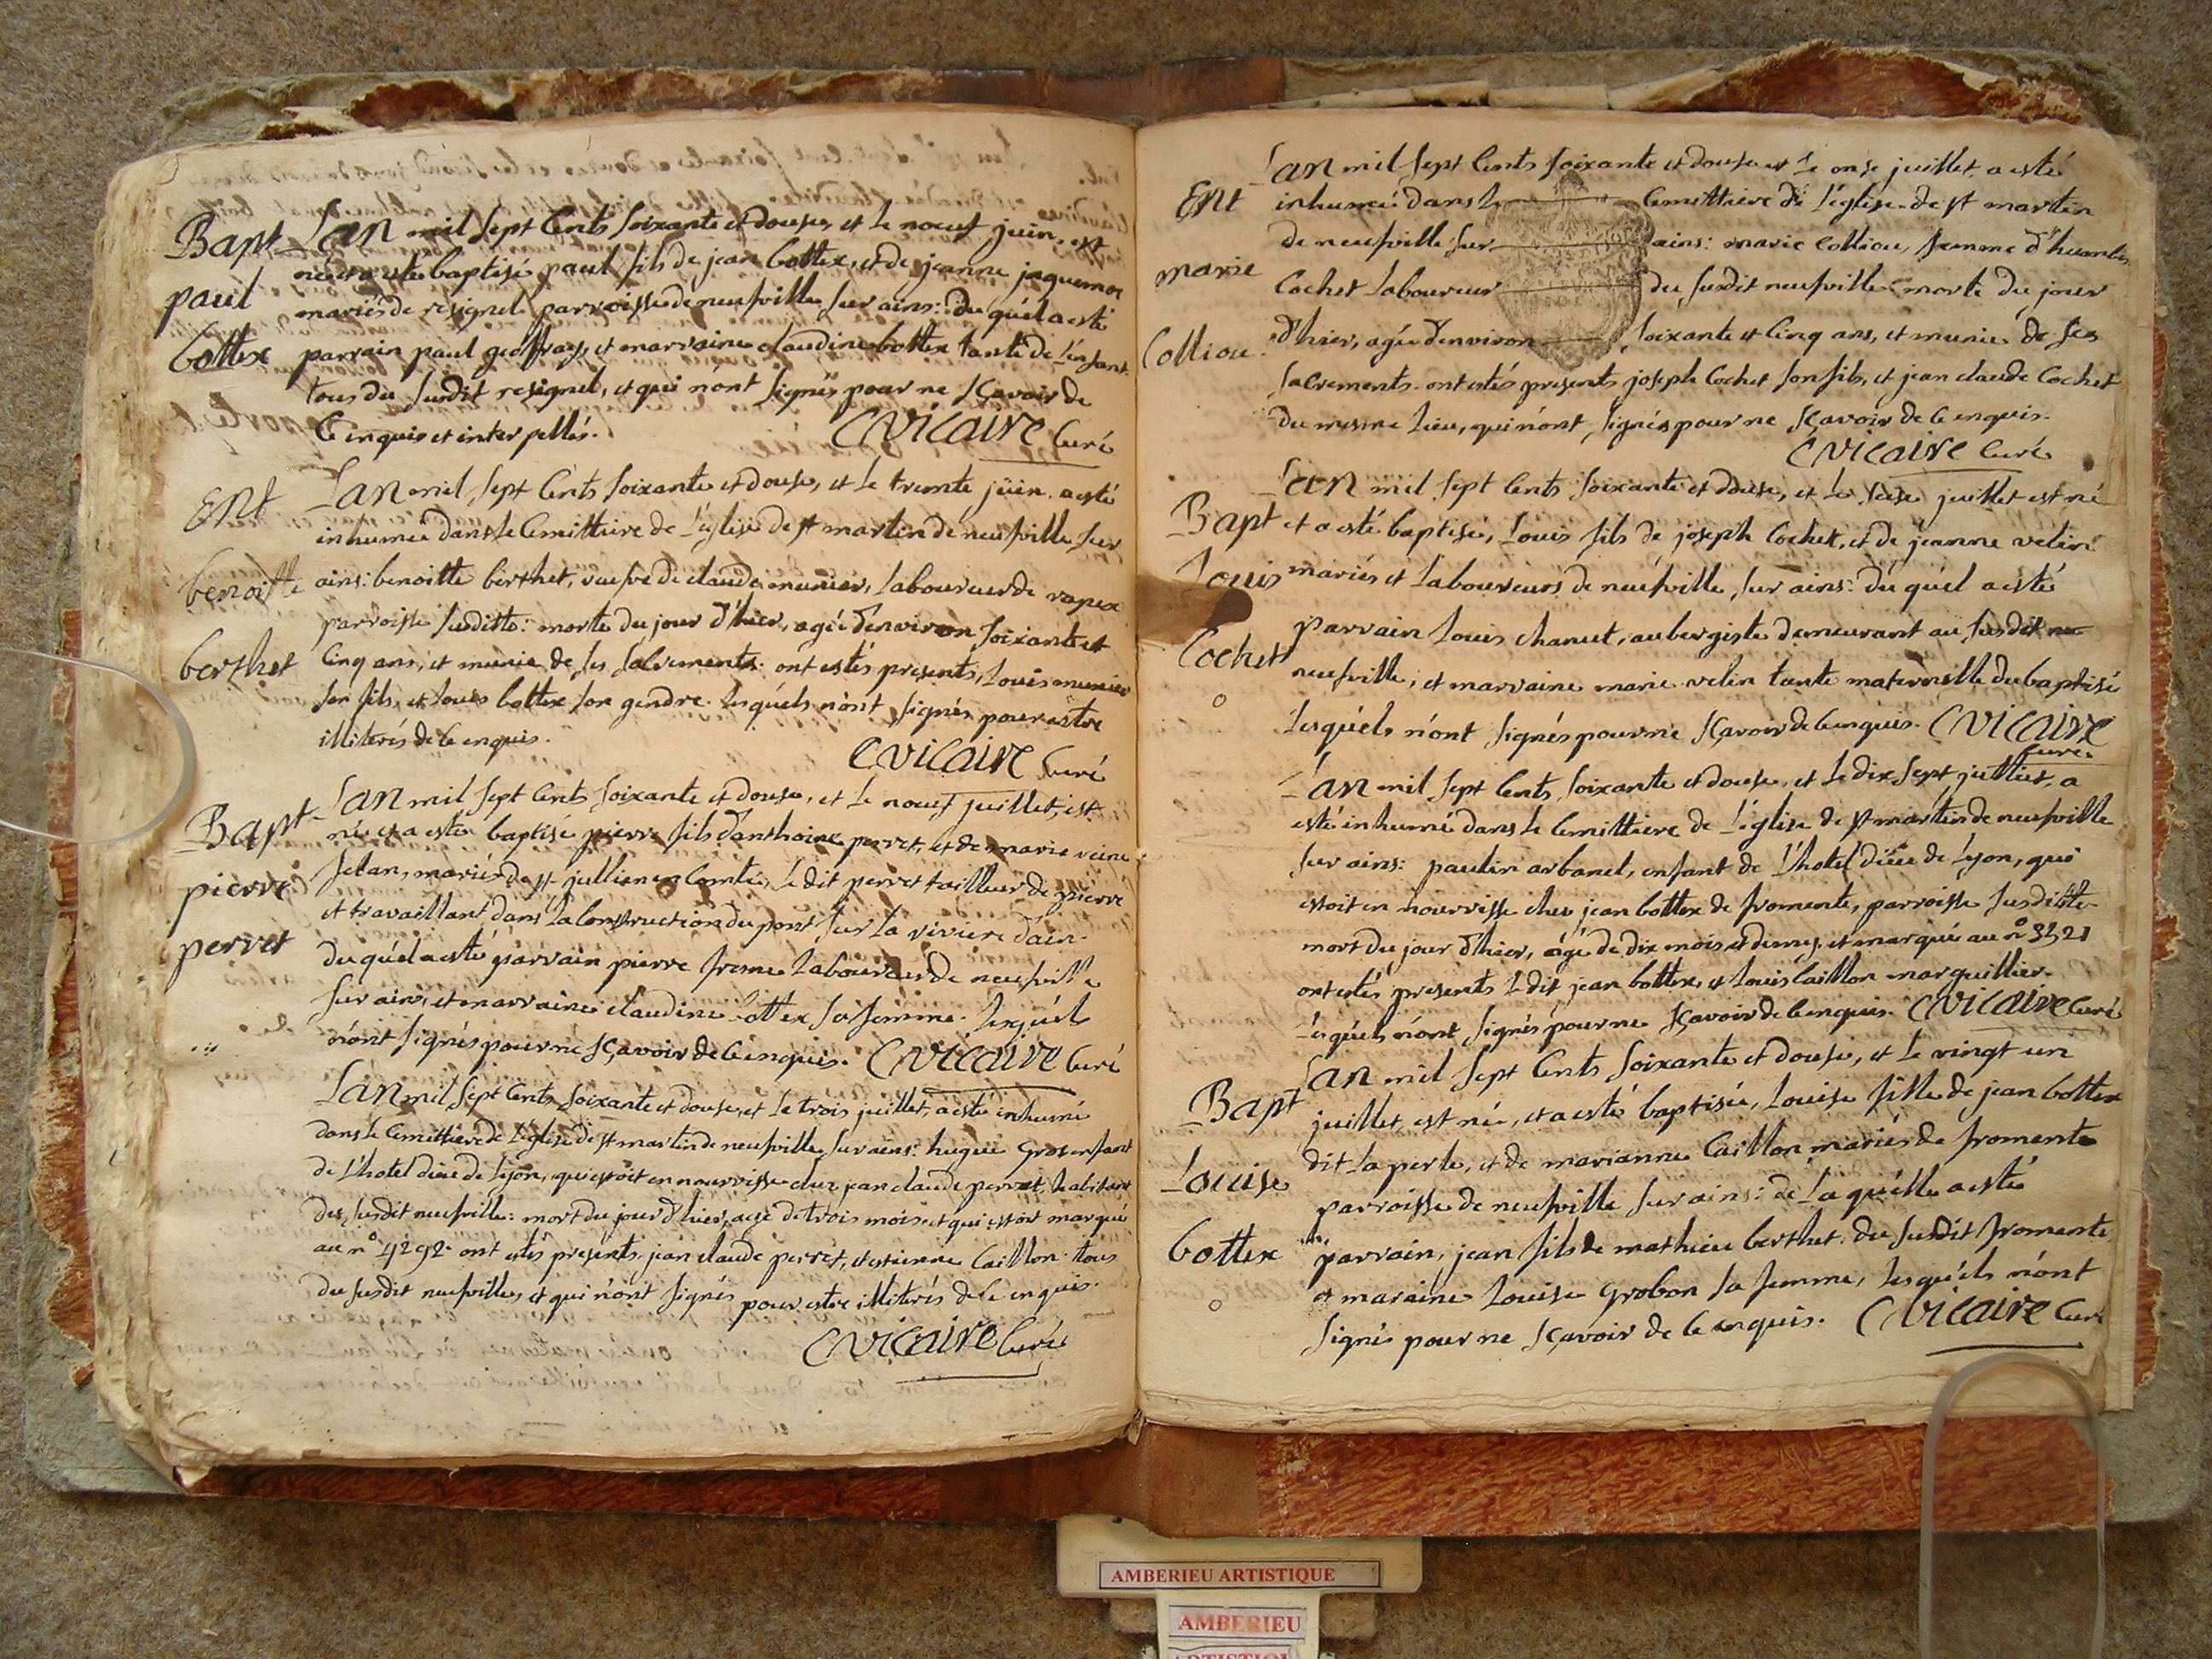 Bapt
paul
bottex
Lan mil sept Cents soixante et douse, et le noeuf juin, est
né et a esté baptisé paul fils de jean bottex, et de jeanne jaquemos
mariés de resignel parroisse de neufville sur ains: du quél a esté
parrain paul geoffray, et marraine claudine bottex tante de l'enfant
tous du susdit resignel, et qui n'ont signés pour ne sçavoir de
Ce enquis et interpellés. CVicaire Curé
Ent
benoitte
berthet
Lan mil sept Cents soixante et douse, et le trente juin. a esté
inhumée dans le Cemittiere de L'église de st martin de neufville sur
ains: benoitte berthet, veufve de claude munier, Laboureur de rapex
parroisse susditte: morte du jour d'hier, agée d'environ soixante et
Cinq ans, et munie de ses sacrements. ont estés presents, Louis munier
son fils, et Louis bottex son gendre. lesquéls n'ont signés pour estre
illiterés de Ce enquis.
CVicaire Curé
Bapt
pierre
perret
Lan mil sept Cents soixante et douse, et le noeuf juillet, est
né et a esté baptisé pierre fils d'anthoine perret, et de marie reine
jelan, mariés de st jullien en Comté, le dit perret tailleur de pierre
et travaillant dans la Construction du pont sur la riviere dain.
du quél a esté parrain pierre Laboureur de neufville
sur ains, et marraine claudine bottex sa femme. lesquéls
n'ont signés pour ne sçavoir de Ce enquis. CVicaire Curé
Lan mil sept Cents soixante et douse, et le trois juillet, a esté inhumé
dans le Cemittiere de L'église de st martin de neufville sur ains: hugue gros enfant
de L'hotel dieu de Lyon, qui estoit en nourrisse chez jean claude perret, habitant
du susdit neufville: mort du jour d'hier, agé de trois mois et qui estoit marqué
au n° 4292. ont estés presents jean claude perret, et estienne Caillon. tous
du susdit neufville, et qui n'ont signés pour estre illiterés de Ce enquis.
CVicaire Curé
Ent
marie
Colliou
Lan mil sept Cents soixante et douse et le onse juillet, a esté
inhumée dans le Cemittiere de L'église de st martin
de neufville sur ains: marie Colliou, femme d'humbert
Cochet Laboureur du susdit neufville morte du jour
d'hier, agée d'environ soixante et Cinq ans, et munie de ses
sacrements. ont estés presents joseph Cochet son fils, et jean claude Cochet
du mesme Lieu, qui n'ont signés pour ne sçavoir de Ce enquis.
CVicaire Curé
Bapt
Louis
Cochet
Lan mil sept Cents soixante et douse, et le seise juillet est né
et a esté baptisé, Louis fils de joseph Cochet, et de jeanne velin
mariés et Laboureurs de neufville sur ains: du quél a esté
parrain Louis chanut, aubergiste demeurant au susdit
neufville, et marraine marie velin tante maternelle du baptisé
Lesquéls n'ont signés pour ne sçavoir de Ce enquis. CVicaire
Curé
Lan mil sept Cents soixante et douse, et le dix sept juillet, a
esté inhumé dans le Cemittiere de L'église de st martin de neufville
sur ains: paulin arbanel, enfant de L'hotel dieu de Lyon, qui
estoit en nourrisse chez jean bottex de fromente, parroisse susditte
mort du jour d'hier, agé de dix mois et demy, et marqué au n° 3521
ont estés presents Ledit jean bottex, et Louis Caillon marguillier.
Lesquéls n'ont signés pour ne sçavoir de Ce enquis. CVicaire Curé
Bapt
Louise
bottex
Lan mil sept Cents soixante et douse, et le vingt un
juillet, est née, et a esté baptisée, Louise fille de jean bottex
dit La perle, et de marianne Caillon mariés de fromente
parroisse de neufville sur ains: de La quélle a esté
parrain, jean fils de mathieu berthet du susdit fromente
et maraine Louise grobon sa femme, Lesquéls n'ont
signés pour ne sçavoir de Ce enquis. CVicaire Curé
AMBERIEU ARTISTIQUE
AMBERIEU